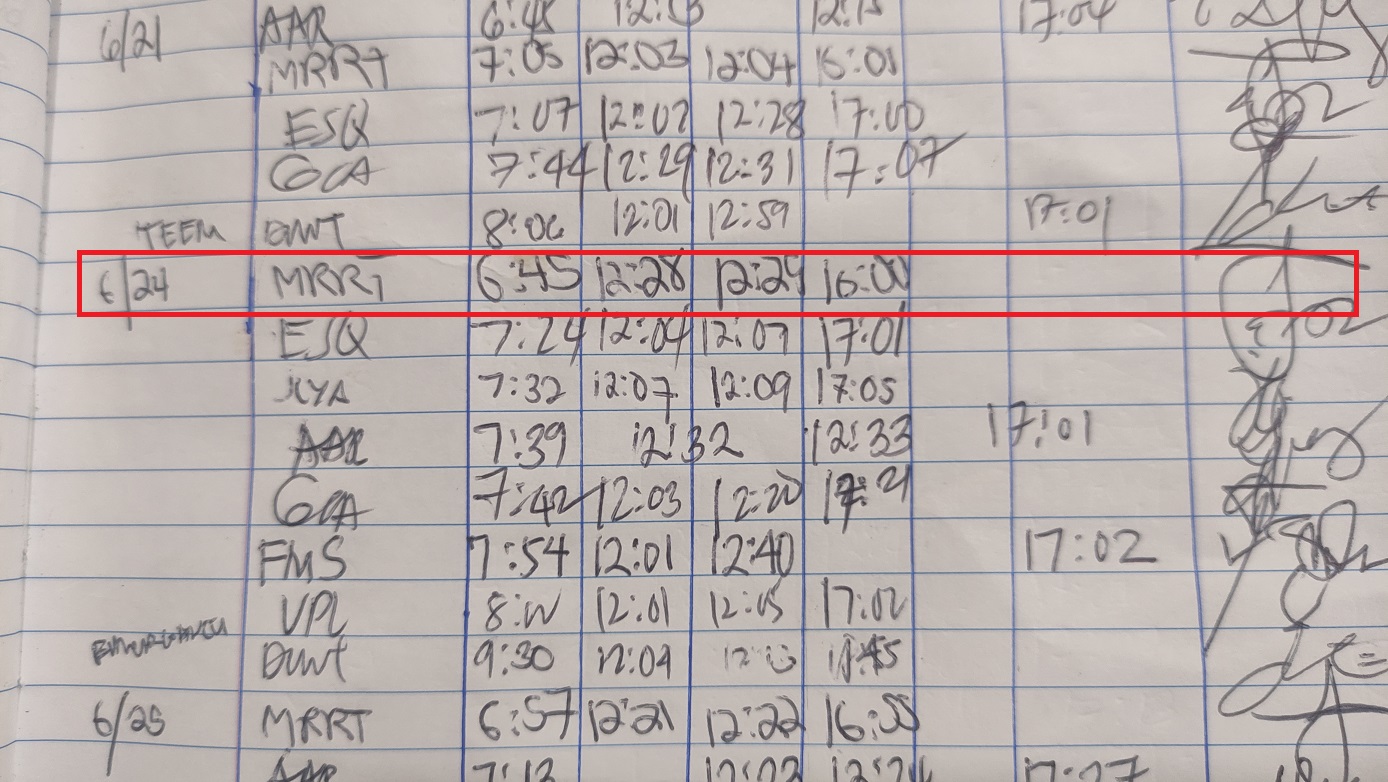 6/21 AAR 6:45 12:13 12:15 17:04
MRRT 7:05 12:03 12:04 16:01
ESQ 7:07 12:07 12:28 17:00
GCA 7:44 12:29 12:31 17:07
TEEM DWT 8:06 12:01 12:59 17:01
6/24 MRRT 6:45 12:28 12:29 16:00
ESQ 7:24 12:04 12:07 17:01
7:32 12:07 12:09 17:05
AAR 7:39 12:32 12:33 17:01
GCA 7:42 12:03 12:20
FMS 7:54 12:01 12:40 17:02
VPL 12:01 12:05 17:02
DWT 9:30 12:09
6/25 MRRT 6:57 12:21 12:22 16:55
AAR 7:13